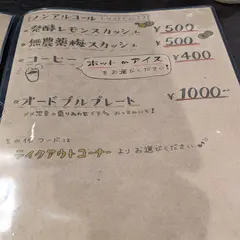 ノンアルコール
・発酵レモンスカッシュ ¥500
・無農薬梅スカッシュ ¥500
・コーヒー ホット or アイス ¥400
をお選びください!
・オードブルプレート ¥1000
その他フードは
テイクアウトコーナーよりお選びください